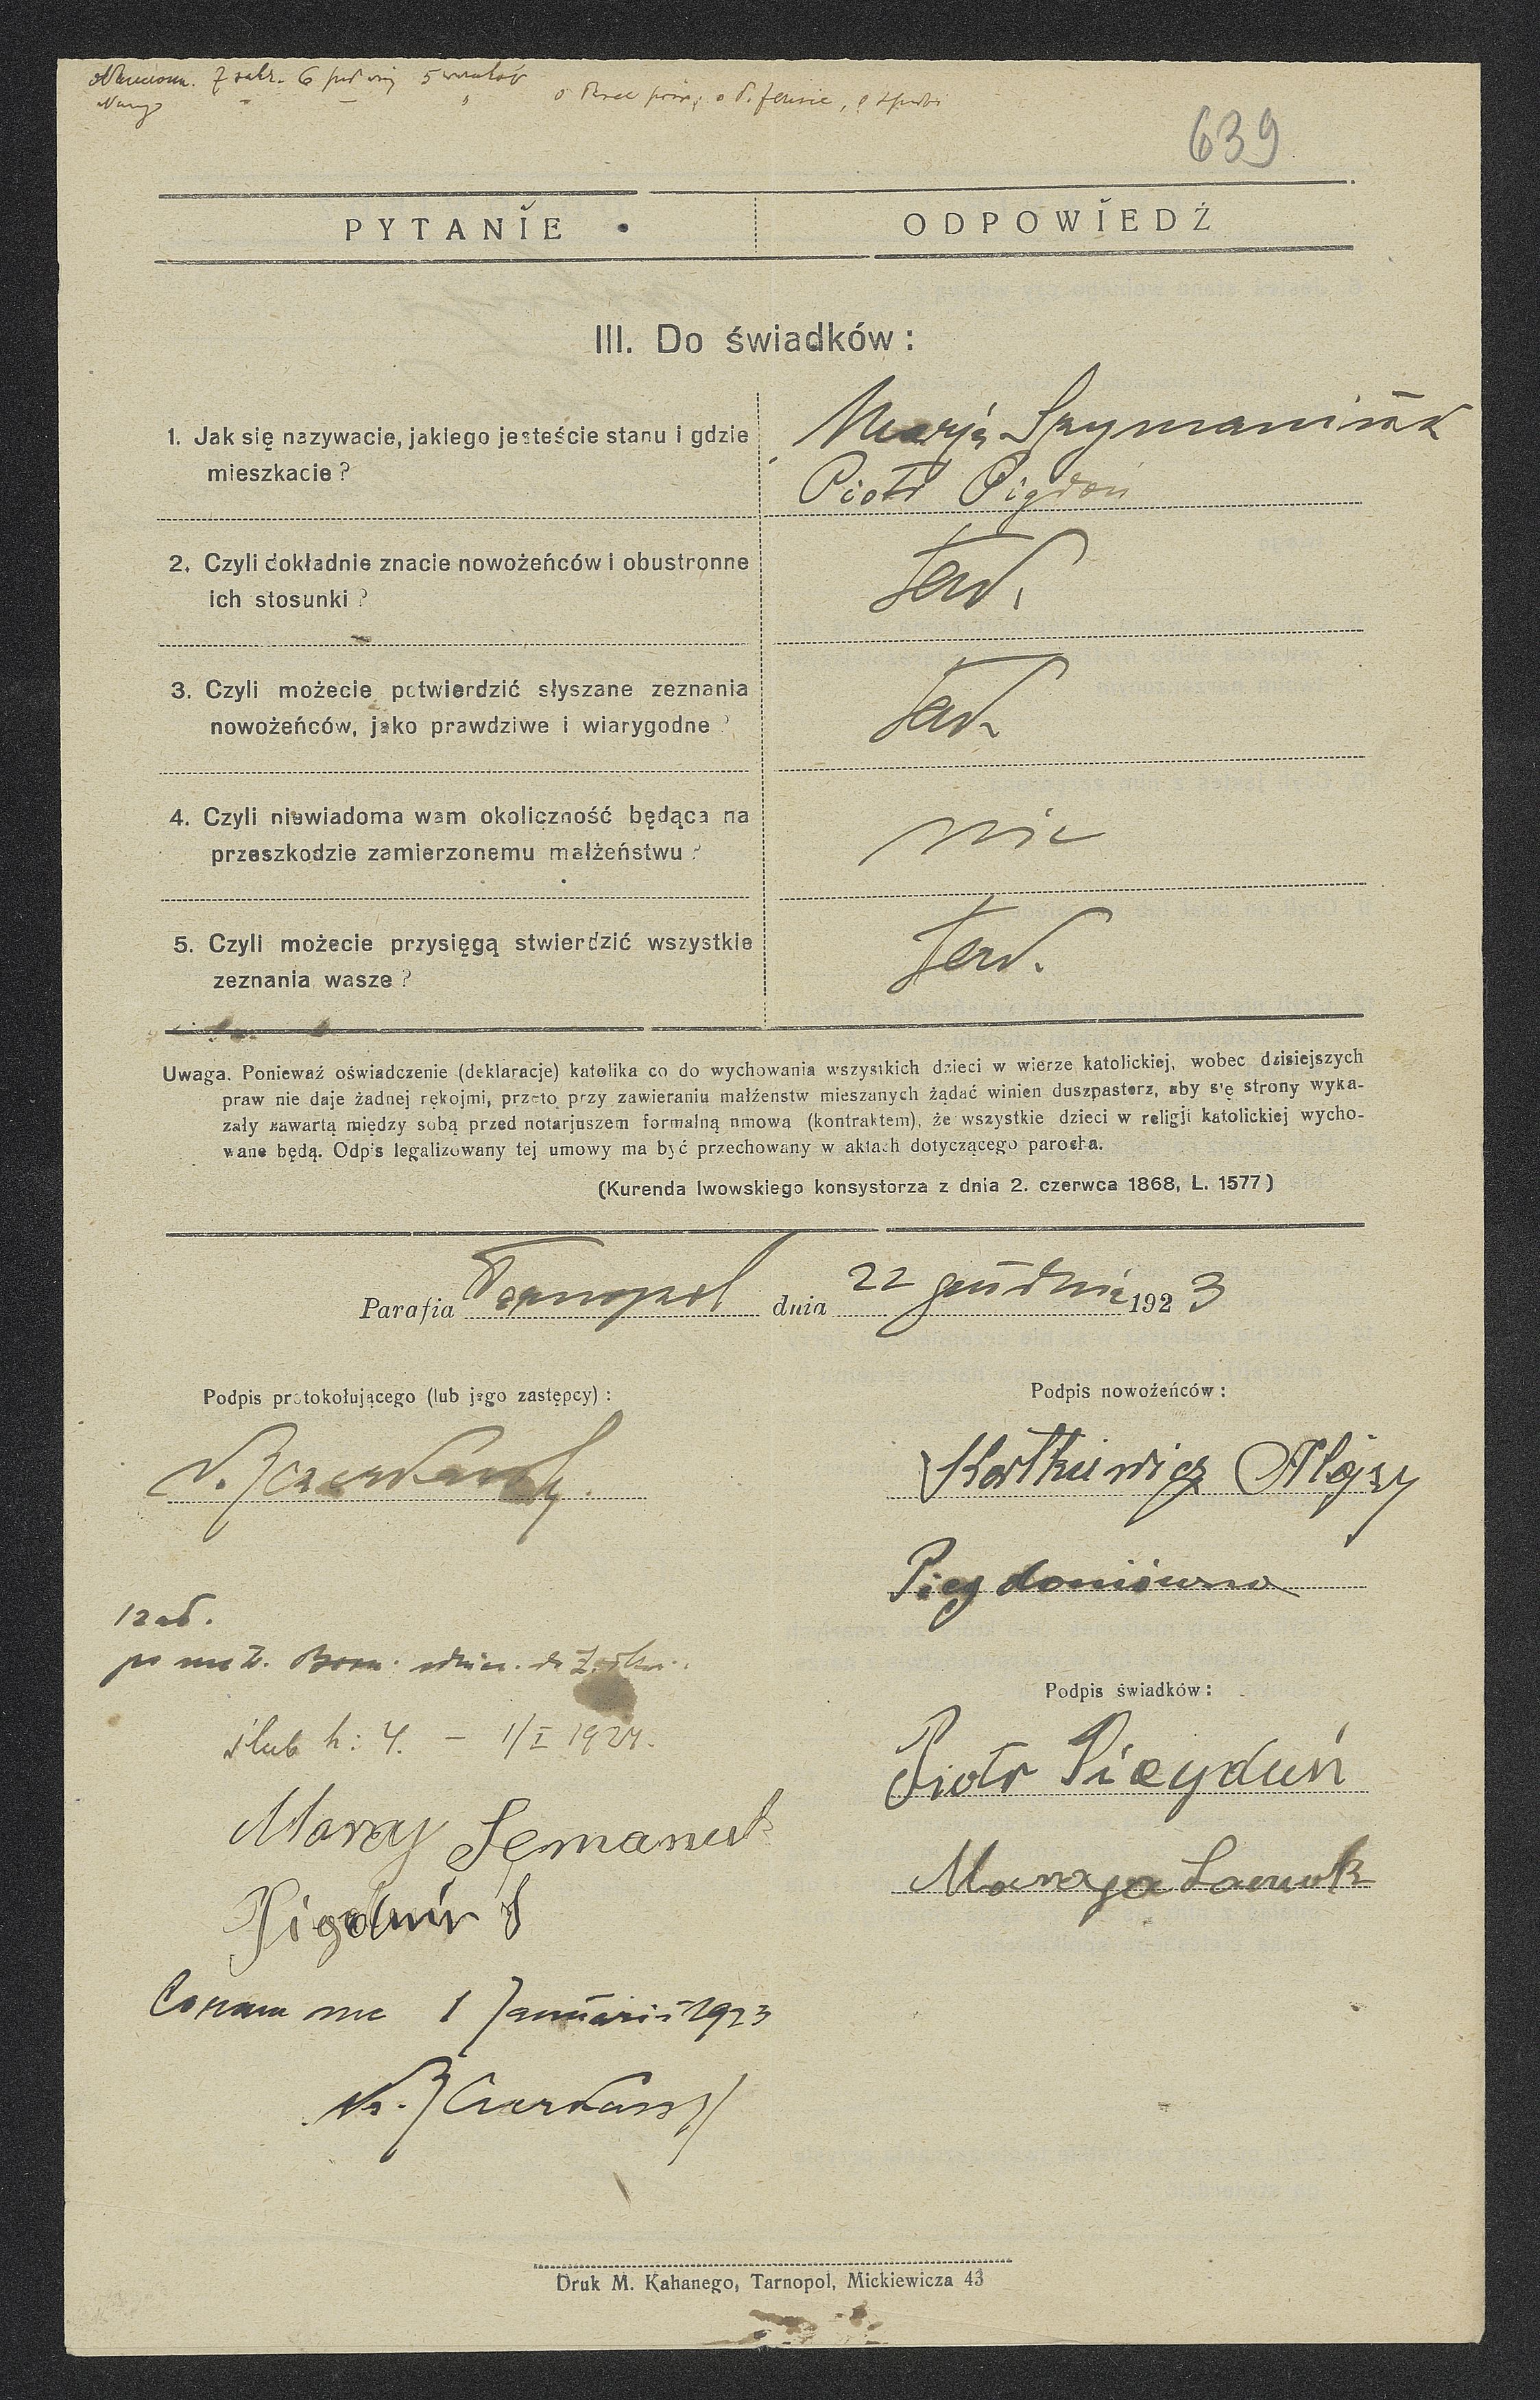 639
PYTANIE
ODPOWIEDŹ
III. Do świadków:
1. Jak się nazywacie, jakiego jesteście stanu i gdzie
mieszkacie?
Marja Szymaniuk
Piotr Pigdoń
2. Czyli dokładnie znacie nowożeńców i obustronne
ich stosunki?
Tak.
3. Czyli możecie potwierdzić słyszane zeznania
nowożeńców, jako prawdziwe i wiarygodne?
Tak
4. Czyli niewiadoma wam okoliczność będąca na
przeszkodzie zamierzonemu małżeństwu?
nie
5. Czyli możecie przysięgą stwierdzić wszystkie
zeznania wasze?
Tak.
Uwaga. Ponieważ oświadczenie (deklaracje) katolika co do wychowania wszystkich dzieci w wierze katolickiej, wobec dzisiejszych
praw nie daje żadnej rękojmi, przeto przy zawieraniu małżenstw mieszanych żądać winien duszpasterz, aby się strony wyka-
zały zawartą między sobą przed notarjuszem formalną nmową (kontraktem), że wszystkie dzieci w religji katolickiej wycho-
wane będą. Odpis legalizowany tej umowy ma być przechowany w aktach dotyczącego parocha.
(Kurenda lwowskiego konsystorza z dnia 2. czerwca 1868, L. 1577)
Parafia Tarnopol dnia 22 grudnia 1923
Podpis protokołującego (lub jego zastępcy):
Podpis nowożeńców:
Kotkiewicz Alojzy
Piegdoniówna
ślub h: 4. — 1/I 1924.
Podpis świadków:
Piotr Piegduń
Maryja
Coram me 1 Januarii 1923
Druk M. Kahanego, Tarnopol, Mickiewicza 43